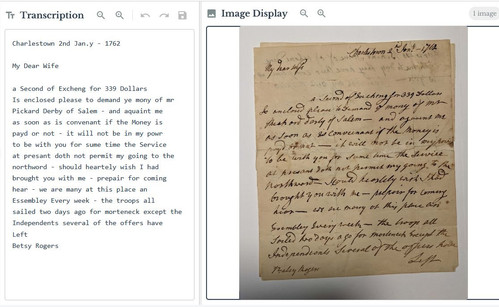 Transcription
Charlestown 2nd Jan.y - 1762
My Dear Wife
a Second of Excheng for 339 Dollars
Is enclosed please to demand ye mony of mr
Pickard Derby of Salem - and aquaint me
as soon as is convenant if the Money is
payd or not - it will not be in my powr
to be with you for sume time the Service
at presant doth not permit my going to the
northword - should heartely wish I had
brought you with me - prepair for coming
hear - we are many at this place an
Essembley Every week - the troops all
sailed two days ago for morteneck except the
Independents several of the offers have
Left
Betsy Rogers
Image Display
1 image
Charlestown 2d Jany - 1762
My Dear Wife
a Second of Excheng for 339 Dollars
Is enclosed please to demand ye mony of mr
Derby of Salem - and aquaint me
as soon as is convenant if the Money is
payd or not - it will not be in my powr
to be with you for sume time the Service
at presant doth not permit my going to the
northword - should heartely wish I had
brought you with me - prepair for coming
hear - we are many at this place an
Essembley Every week - the troops all
Sailed two days ago for morteneck Except the
Independents Several of the offers have
Left
Betsy Rogers